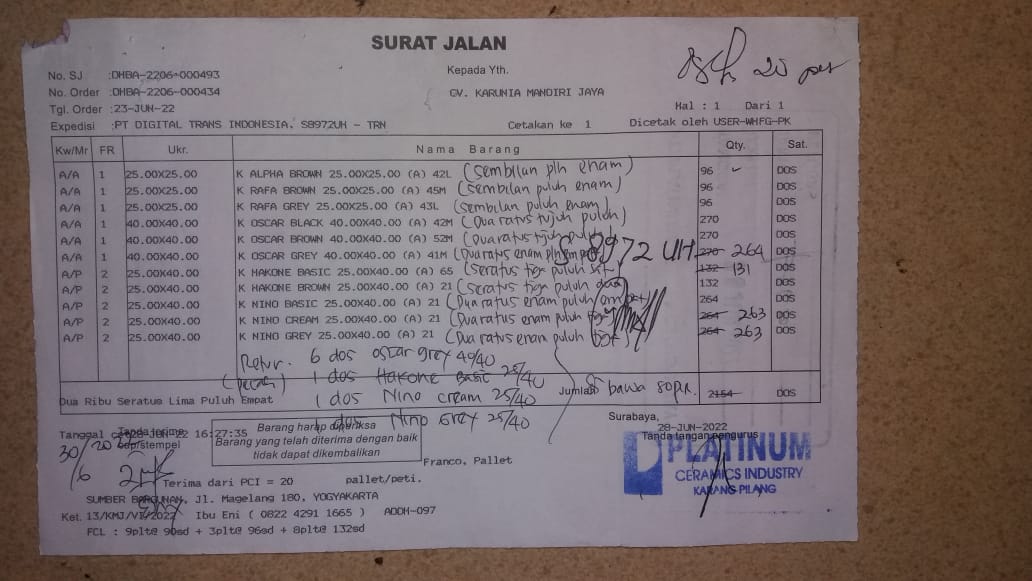 SURAT JALAN
20 pcs
No. SJ :DHBA-2206-000493
Kepada Yth.
No. Order :DHBA-2206-000434
CV. KARUNIA MANDIRI JAYA
Tgl. Order :23-JUN-22
Hal : 1 Dari 1
Expedisi :PT DIGITAL TRANS INDONESIA. S8972UH - TRN
Cetakan ke 1
Dicetak oleh USER-WHFG-PK
Kw/Mr FR Ukr. Nama Barang Qty. Sat.
A/A 1 25.00X25.00 K ALPHA BROWN 25.00X25.00 (A) 42L (sembilan plh enam) 96 DOS
A/A 1 25.00X25.00 K RAFA BROWN 25.00X25.00 (A) 45M (sembilan puluh enam) 96 DOS
A/A 1 25.00X25.00 K RAFA GREY 25.00X25.00 (A) 43L (sembilan puluh enam) 96 DOS
A/A 1 40.00X40.00 K OSCAR BLACK 40.00X40.00 (A) 42M (Dua ratus tujuh puluh) 270 DOS
A/A 1 40.00X40.00 K OSCAR BROWN 40.00X40.00 (A) 52M (Dua ratus tujuh puluh) 270 DOS
A/A 1 40.00X40.00 K OSCAR GREY 40.00X40.00 (A) 41M (Dua ratus enam plh 270 264 DOS
S 8972 UH
A/P 2 25.00X40.00 K HAKONE BASIC 25.00X40.00 (A) 65 (Seratus tiga puluh 132 131 DOS
A/P 2 25.00X40.00 K HAKONE BROWN 25.00X40.00 (A) 21 (Seratus tiga puluh dua) 132 DOS
A/P 2 25.00X40.00 K NINO BASIC 25.00X40.00 (A) 21 (Dua ratus enam puluh 264 DOS
A/P 2 25.00X40.00 K NINO CREAM 25.00X40.00 (A) 21 (Dua ratus enam puluh tiga 264 263 DOS
A/P 2 25.00X40.00 K NINO GREY 25.00X40.00 (A) 21 (Dua ratus enam puluh 264 263 DOS
Retur. 6 dos oscar grey 40/40
(pecah) 1 dos Hakone Basic 25/40
1 dos Nino cream 25/40
1 dos Nino Grey 25/40
bawa
Dua Ribu Seratus Lima Puluh Empat Jumlah 2154 DOS
Surabaya,
28-JUN-2022
Tanggal 28-JUN-22 16:27:35
Tanda terima
cap/stempel
30/6
Barang harap diperiksa
Barang yang telah diterima dengan baik
tidak dapat dikembalikan
Tanda tangan pengurus
PLATINUM
CERAMICS INDUSTRY
KARANG PILANG
Franco, Pallet
Terima dari PCI = 20 pallet/peti.
SUMBER BANGUNAN, Jl. Magelang 180, YOGYAKARTA
Ket. 13/KMJ/VI/2022 Ibu Eni ( 0822 4291 1665 ) ADDH-097
FCL : 9plt@ 90sd + 3plt@ 96sd + 8plt@ 132sd